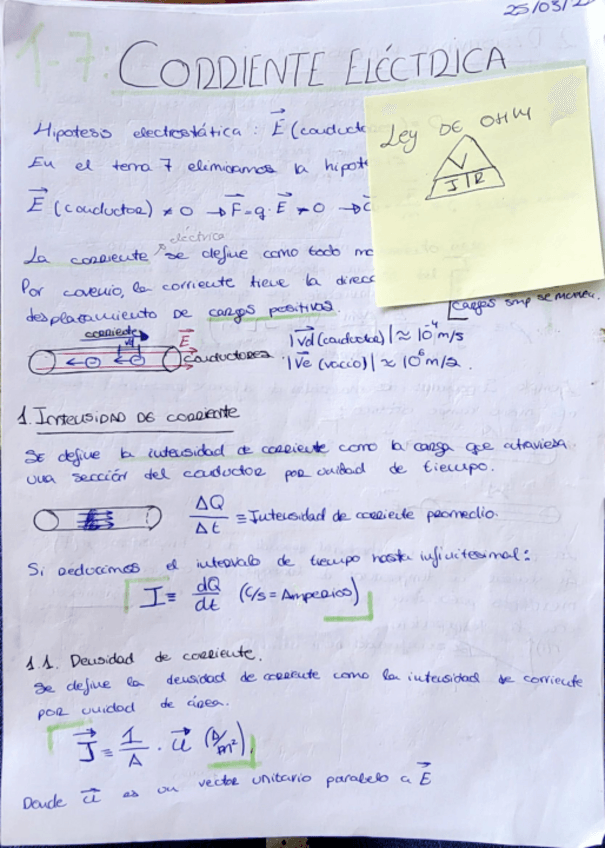 25/03/2
1-7: CORRIENTE ELÉCTRICA
Hipotesis electrostática : E⃗ (conducto
Ley DE OHM
V
I | R
En el tema 7 eliminamos la hipot
E⃗ (conductor) ≠ 0 → F⃗ = q · E⃗ ≠ 0 →
eléctrica
La corriente se define como todo mo
Por covenio, la corriente tiene la direcc
desplazamiento de cargas positivas
cargas smp se mueven.
corriente
E⃗
conductores
|v⃗d (conductor)| ≈ 10⁻⁴ m/s
|v⃗e (vacío)| ≈ 10⁶ m/s.
1. INTENSIDAD DE CORRIENTE
Se define la intensidad de corriente como la carga que atraviesa
una sección del conductor por unidad de tiempo.
ΔQ/Δt ≡ Intensidad de corriente promedio.
Si reducimos el intervalo de tiempo hasta infinitesimal:
I ≡ dQ/dt (C/s = Amperios)
1.1. Densidad de corriente.
Se define la densidad de corriente como la intensidad de corriente
por unidad de área.
J⃗ = 1/A · u⃗ (A/m²)
Donde u⃗ es un vector unitario paralelo a E⃗